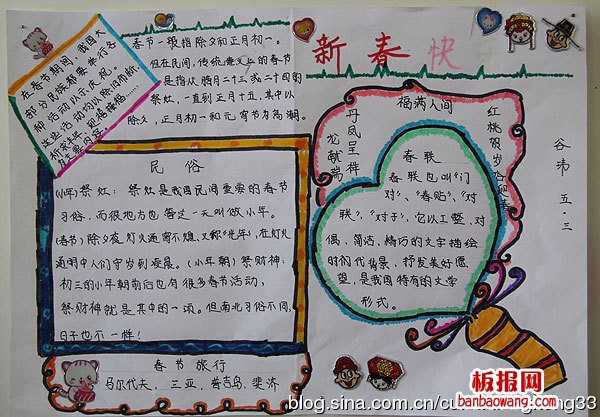 在春节期间，我国大
部分民族都要举行各
种活动以示庆祝。
这些活动以除旧布新
迎禧接福……
为主要内容。
春节一般指除夕和正月初一。
但在民间，传统意义上的春节
是指从腊月二十三或二十四的
祭灶，一直到正月十五，其中以
除夕，正月初一和元宵节为高潮。
新春快
民俗
(小年)祭灶：祭灶是我国民间重要的春节
习俗，而很地方也每这一天叫做小年。
(春节)除夕夜灯火通宵不熄，又称"光年"，在灯火
通明中人们守岁到凌晨。(小年朝)祭财神：
初三的小年朝前后也有很多春节活动，
祭财神就是其中的一项。但南北习俗不同，
日子也不一样！
春节旅行
马尔代夫、三亚、普吉岛、斐济
福满人间
丹凤呈祥
龙献瑞
红桃贺岁
春联
春联也叫"门
对"、"春贴"、"对
联"、"对子"，它以工整、对
偶、简洁、精巧的文字描绘
时代背景，抒发美好愿
望，是我国特有的文学
形式。
谷玮 五·三
板报网
banbaowang.com